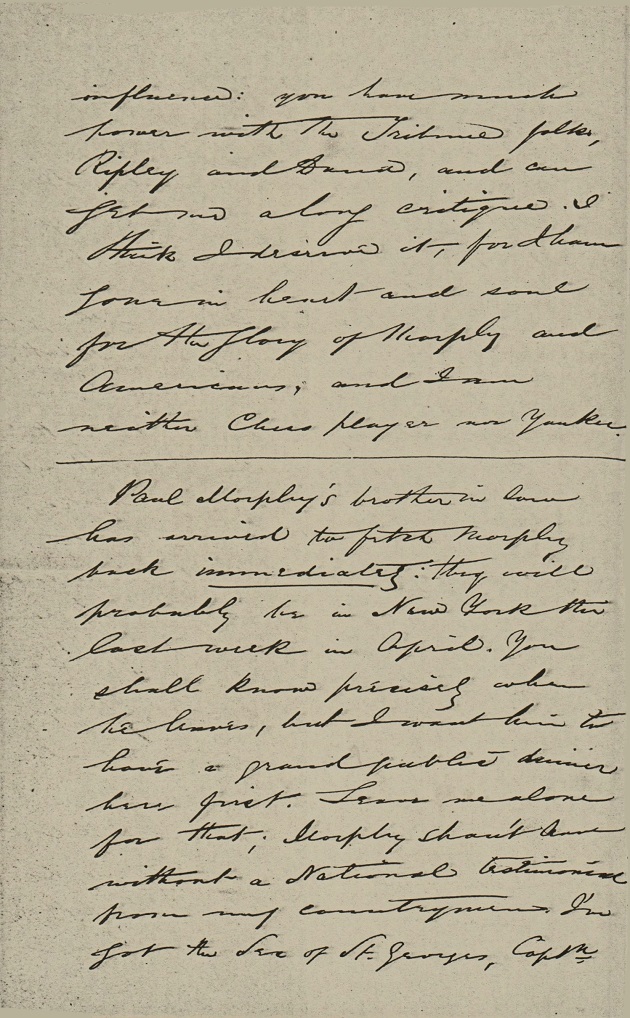 influence: you have much
power with the Tribune folks,
Ripley and Dana, and can
get me a long critique. I
think I deserve it, for I have
gone in heart and soul
for the glory of Morphy and
Americans, and I am
neither Chess player nor Yankee.
Paul Morphy's brother in law
has arrived to fetch Morphy
back immediately: they will
probably be in New York the
last week in April. You
shall know precisely when
he leaves, but I want him to
have a grand public dinner
here first. Leave me alone
for that; Morphy shan't leave
without a National testimonial
from my countrymen. I've
got the Sec of St. Georges, Captn